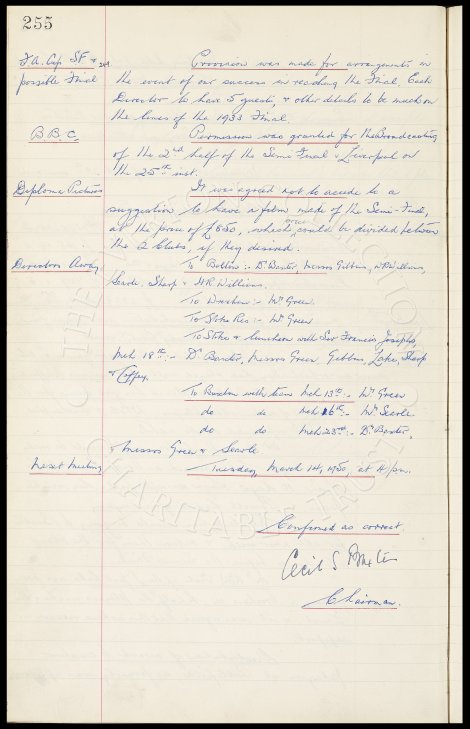 255
F.A. Cup S.F. & possible Final
Provision was made for arrangements in
the event of our success in reaching the Final. Each
Director to have 5 guests, & other details to be much on
the lines of the 1933 Final
B.B.C.
Permission was granted for the Broadcasting
of the 2nd half of the Semi Final v Liverpool on
the 25th inst.
Diploma Pictures
It was agreed not to accede to a
suggestion to have a film made of the Semi-Final,
at the price of £850, which price could be divided between
the 2 Clubs, if they desired.
Directors Away
To Bolton :- Dr Baxter, Messrs Gibbins, W.R. Williams,
Searle, Sharp & H.R. Williams.
To :- Mr Green.
To Stoke Res :- Mr Green
To Stoke & luncheon with Sir Francis Joseph,
Mch 18th :- Dr Baxter, Messrs Green Gibbins, Lake, Sharp
& Coffey.
To Buxton with team Mch 13th :- Mr Green
do do Mch 16th :- Mr Searle
do do Mch 23rd :- Dr Baxter,
& Messrs Green & Searle
Next Meeting
Tuesday, March 1950, at 4 pm.
Confirmed as correct.
Cecil S Baxter
Chairman.
THE
CHARITABLE TRUST